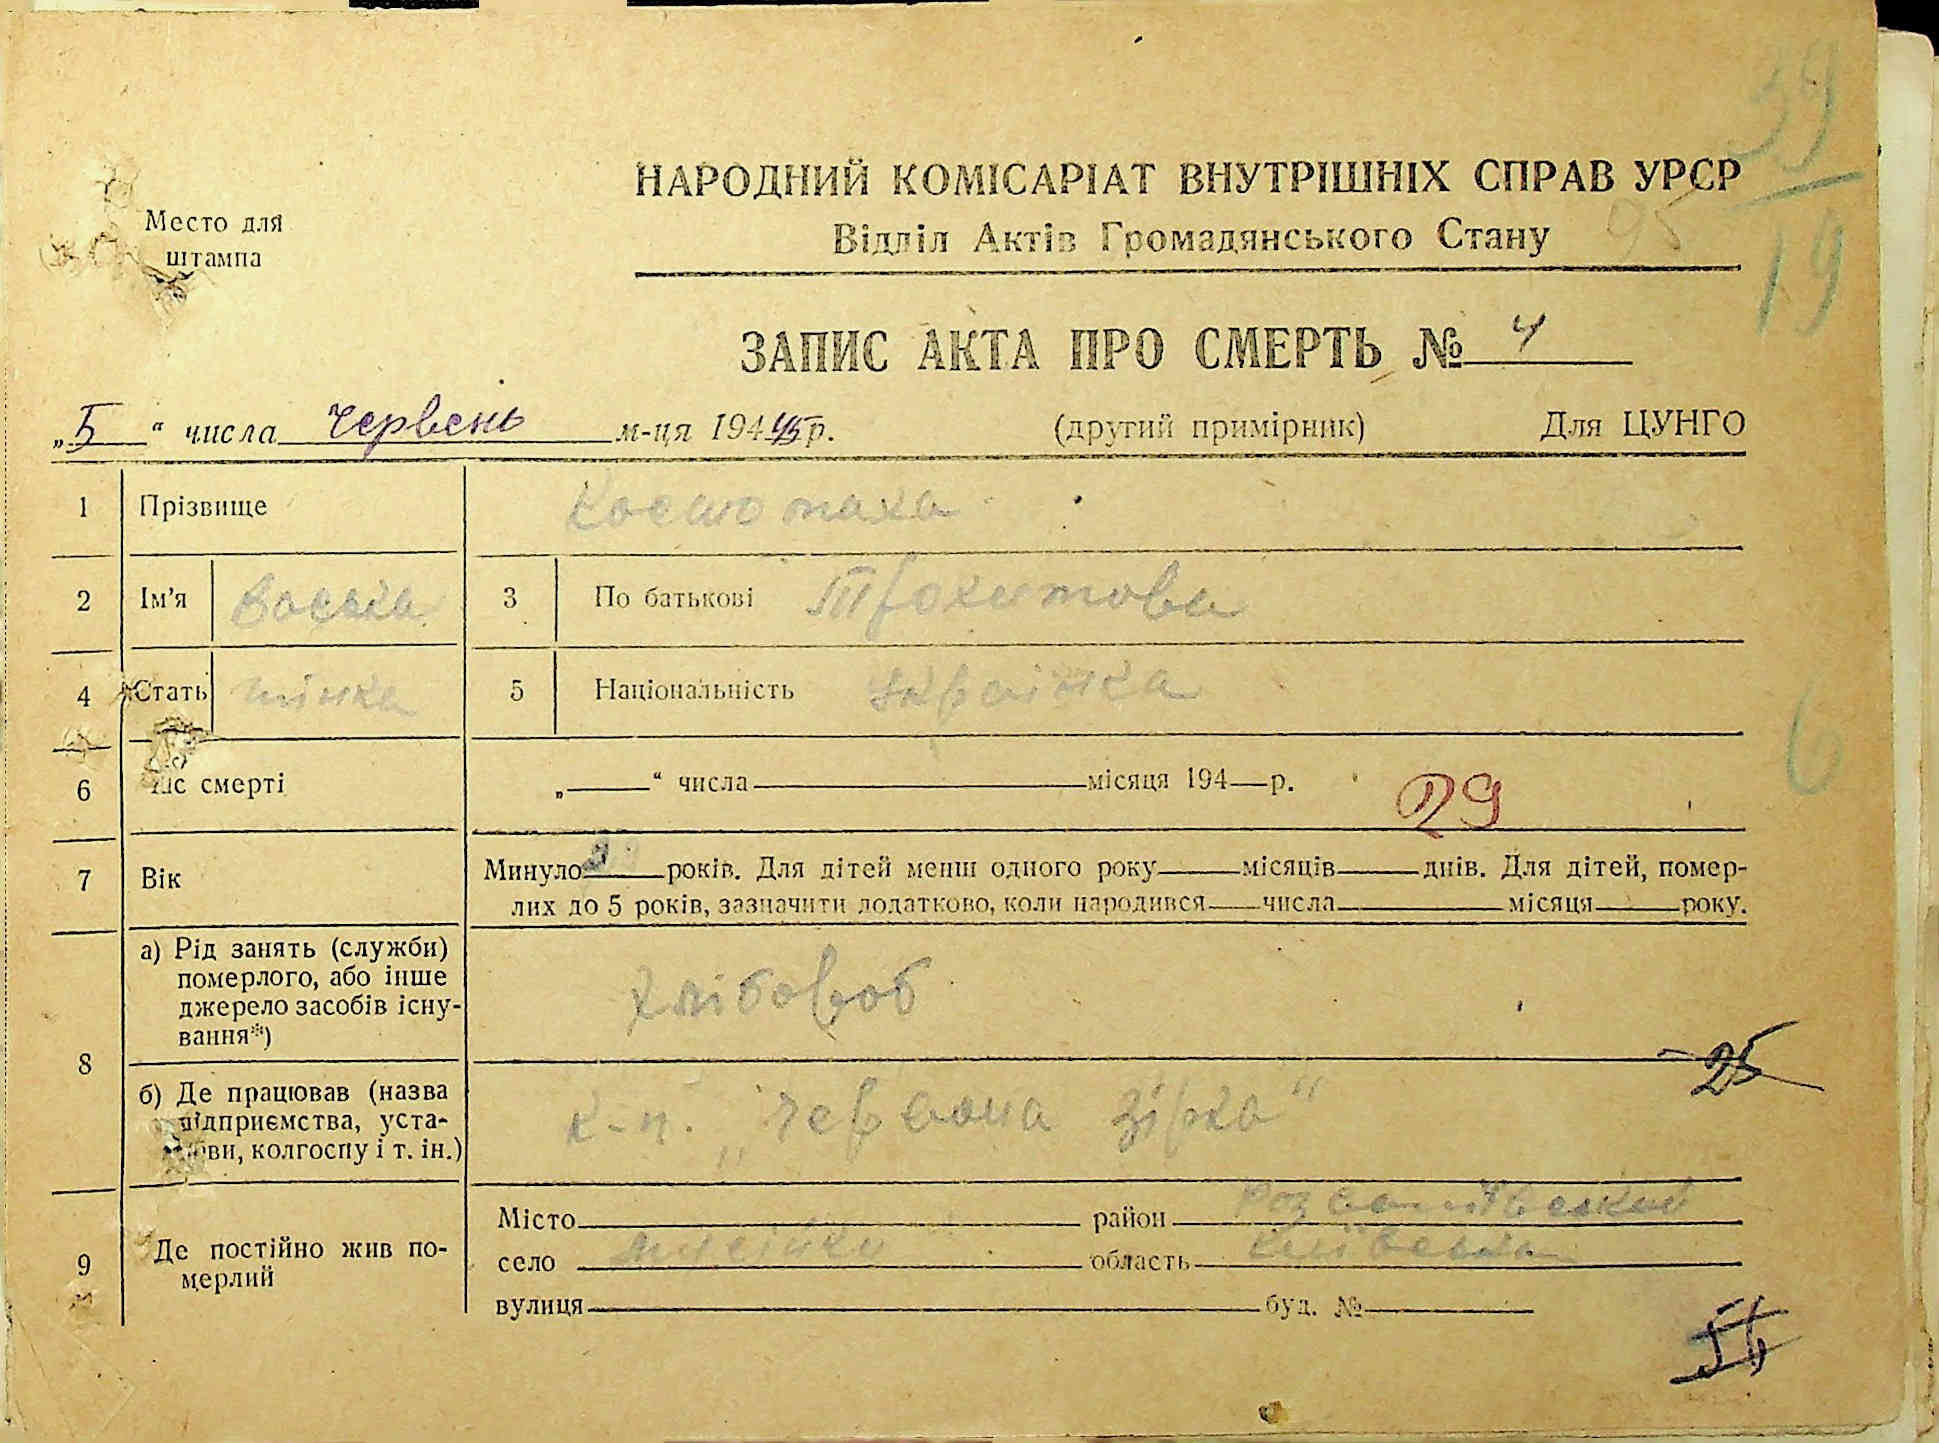 39
19
95
Место для
штампа
НАРОДНИЙ КОМІСАРІАТ ВНУТРІШНІХ СПРАВ УРСР
Відділ Актів Громадянського Стану
ЗАПИС АКТА ПРО СМЕРТЬ № 4
„5“ числа червень м-ця 194 45 р. (другий примірник) Для ЦУНГО
1 Прізвище
2 Ім'я 3 По батькові
4 Стать жінка 5 Національність українка
6
6 Час смерті „ “ числа місяця 194 р.
29
7 Вік Минуло років. Для дітей менш одного року місяців днів. Для дітей, помер-
лих до 5 років, зазначити додатково, коли народився числа місяця року.
8 а) Рід занять (служби)
померлого, або інше
джерело засобів існу-
вання*)
хлібороб
25
б) Де працював (назва
підприємства, уста-
нови, колгоспу і т. ін.)
к-п. „Червона зірка“
9 Де постійно жив по-
мерлий
Місто район
село область Київська
вулиця буд. №